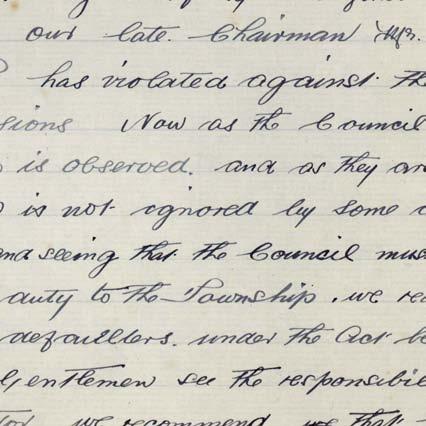 our late. Chairman Mr.
has violated against the
sions Now as the Council
is observed. and as they are
is not ignored by some
and seeing that the Council mus
duty to the Township. we re
defaulters. under the Act be
Gentlemen see the responsibi
tor we recommend we that